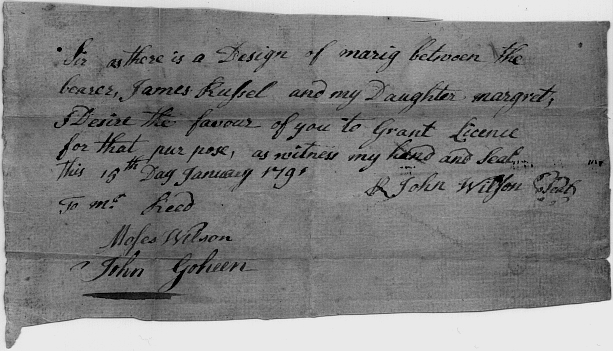 Sir as there is a Design of marig between the
bearer, James Russel and my Daughter margret,
I Desire the favour of you to Grant Licence
for that pur pose, as witness my hand and Seal
this 15th Day January 1791
John Wilson Seal
To mr. Reed
Moses Wilson
John Goheen